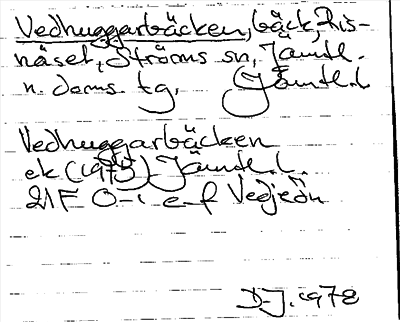 Vedhuggarbäcken, bäck, Ris-
näset, Ströms sn, Jämtl.
n. doms. tg. Jämtl. l.
Vedhuggarbäcken
ek (1975) Jämtl. l.
21F 0-1 e-f Vedjeön
D-J. 1978